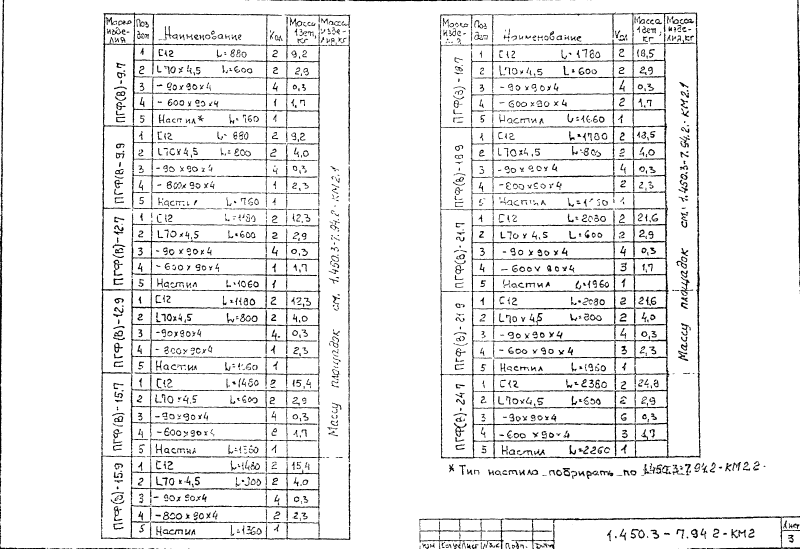 Марка изделия Поз дет Наименование Кол Масса 1дет, кг Масса изделия, кг
ПГФ(В)-9.7
1 С12 L=880 2 9,2
2 L70×4,5 L=600 2 2,9
3 -90×90×4 4 0,3
4 -600×90×4 1 1,7
5 Настил* L=760 1
ПГФ(В)-9.9
1 С12 L=880 2 9,2
2 L70×4,5 L=800 2 4,0
3 -90×90×4 4 0,3
4 -800×90×4 1 2,3
5 Настил L=760 1
ПГФ(В)-12.7
1 С12 L=1180 2 12,3
2 L70×4,5 L=600 2 2,9
3 -90×90×4 4 0,3
4 -600×90×4 1 1,7
5 Настил L=1060 1
ПГФ(В)-12.9
1 С12 L=1180 2 12,3
2 L70×4,5 L=800 2 4,0
3 -90×90×4 4 0,3
4 -800×90×4 1 2,3
5 Настил L=1060 1
ПГФ(В)-15.7
1 С12 L=1480 2 15,4
2 L70×4,5 L=600 2 2,9
3 -90×90×4 4 0,3
4 -600×90×4 2 1,7
5 Настил L=1360 1
ПГФ(В)-15.9
1 С12 L=1480 2 15,4
2 L70×4,5 L=800 2 4,0
3 -90×90×4 4 0,3
4 -800×90×4 2 2,3
5 Настил L=1360 1
Массу площадок см. 1.450.3-7.94.2-КМ2.1
Марка Поз дет Наименование Кол Масса 1дет, кг Масса изделия, кг
ПГФ(В)-18.7
1 С12 L=1780 2 18,5
2 L70×4,5 L=600 2 2,9
3 -90×90×4 4 0,3
4 -600×90×4 2 1,7
5 Настил L=1660 1
ПГФ(В)-18.9
1 С12 L=1780 2 18,5
2 L70×4,5 L=800 2 4,0
3 -90×90×4 4 0,3
4 -800×90×4 2 2,3
5 Настил 1
ПГФ(В)-21.7
1 С12 L=2080 2 21,6
2 L70×4,5 L=600 2 2,9
3 -90×90×4 4 0,3
4 -600×90×4 3 1,7
5 Настил L=1960 1
ПГФ(В)-21.9
1 С12 L=2080 2 21,6
2 L70×4,5 L=800 2 4,0
3 -90×90×4 4 0,3
4 -600×90×4 3 2,3
5 Настил L=1960 1
ПГФ(В)-24.7
1 С12 L=2380 2 24,8
2 L70×4,5 L=600 2 2,9
3 -90×90×4 6 0,3
4 -600×90×4 3 1,7
5 Настил L=2260 1
Массу площадок см. 1.450.3-7.94.2-КМ2.1
* Тип настила побрирать по 1.450.3-7.94.2-КМ2.2.
1.450.3-7.94 2-КМ2
Лист
3